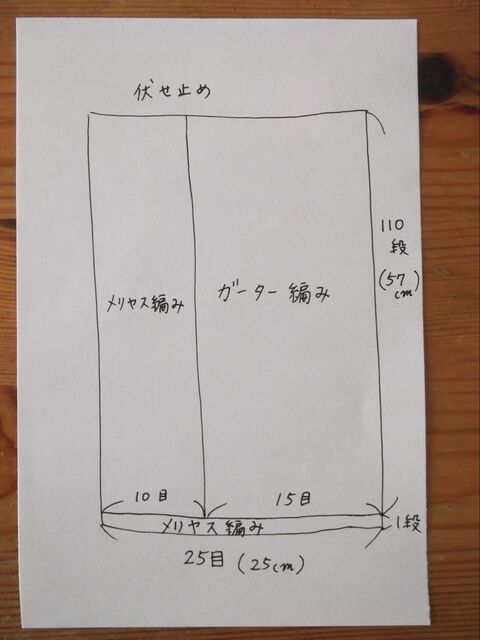 伏せ止め
110
段
(57
cm)
メリヤス編み
ガーター編み
10目
15目
メリヤス編み
1段
25目(25cm)